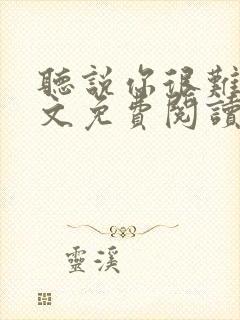 聽說你很難
文免費閱讀
靈溪